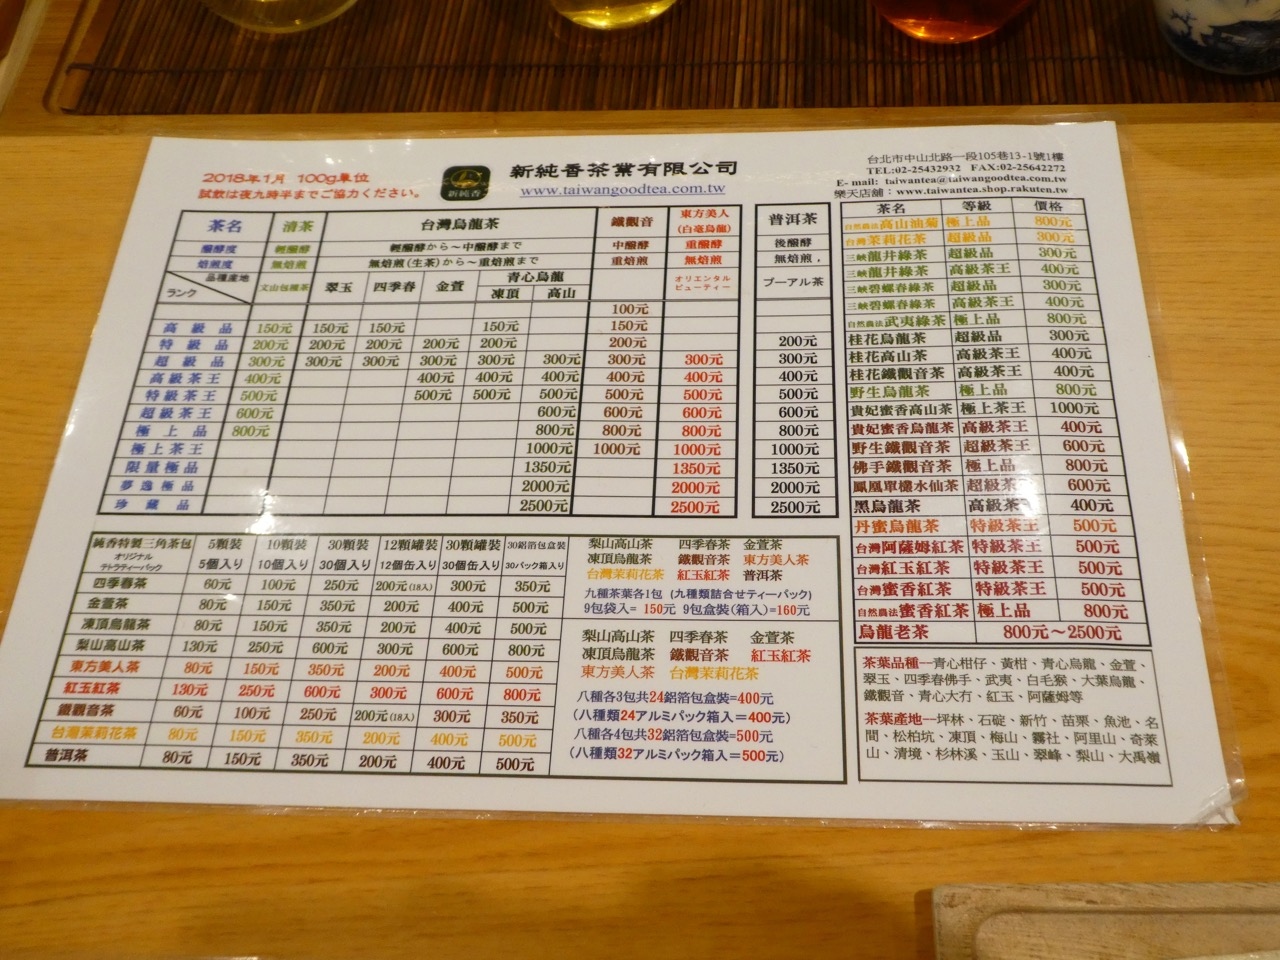 2018年1月 100g單位
試飲は夜九時半までご協力ください。
新純香
新純香茶業有限公司
www.taiwangoodtea.com.tw
台北市中山北路一段105巷13-1號1樓
TEL:02-25432932 FAX:02-25642272
E-mail: taiwantea@taiwangoodtea.com.tw
樂天店舖：www.taiwantea.shop.rakuten.tw
茶名 清茶 台灣烏龍茶 鐵觀音 東方美人(白毫烏龍) 普洱茶
醱酵度 輕醱酵 輕醱酵から～中醱酵まで 中醱酵 重醱酵 後醱酵
焙煎度 無焙煎 無焙煎(生茶)から～重焙煎まで 重焙煎 無焙煎 無焙煎，
品種產地 ランク 文山包種茶 翠玉 四季春 金萱 青心烏龍 凍頂 高山 オリエンタルビューティー プーアル茶
100元
高級品 150元 150元 150元 150元 150元
特級品 200元 200元 200元 200元 200元 200元 200元
超級品 300元 300元 300元 300元 300元 300元 300元 300元 300元
高級茶王 400元 400元 400元 400元 400元 400元 400元
特級茶王 500元 500元 500元 500元 500元 500元 500元
超級茶王 600元 600元 600元 600元 600元
極上品 800元 800元 800元 800元 800元
極上茶王 1000元 1000元 1000元 1000元
限量極品 1350元 1350元 1350元
夢逸極品 2000元 2000元 2000元
珍藏品 2500元 2500元 2500元
茶名 等級 價格
自然農法高山油菊 極上品 800元
台灣茉莉花茶 超級品 300元
三峽龍井綠茶 超級品 300元
三峽龍井綠茶 高級茶王 400元
三峽碧螺春綠茶 超級品 300元
三峽碧螺春綠茶 高級茶王 400元
自然農法武夷綠茶 極上品 800元
桂花烏龍茶 超級品 300元
桂花高山茶 高級茶王 400元
桂花鐵觀音茶 高級茶王 400元
野生烏龍茶 極上品 800元
貴妃蜜香高山茶 極上茶王 1000元
貴妃蜜香烏龍茶 高級茶王 400元
野生鐵觀音茶 超級茶王 600元
佛手鐵觀音茶 極上品 800元
鳳凰單欉水仙茶 超級茶王 600元
黑烏龍茶 高級茶王 400元
丹蜜烏龍茶 特級茶王 500元
台灣阿薩姆紅茶 特級茶王 500元
台灣紅玉紅茶 特級茶王 500元
台灣蜜香紅茶 特級茶王 500元
自然農法蜜香紅茶 極上品 800元
烏龍老茶 800元～2500元
純香特製三角茶包 5顆裝 10顆裝 30顆裝 12顆罐裝 30顆罐裝 30鋁箔包盒裝
オリジナルテトラティーバック 5個入り 10個入り 30個入り 12個缶入り 30個缶入り 30パック箱入り
四季春茶 60元 100元 250元 200元(18入) 300元 350元
金萱茶 80元 150元 350元 200元 400元 500元
凍頂烏龍茶 80元 150元 350元 200元 400元 500元
梨山高山茶 130元 250元 600元 300元 600元 800元
東方美人茶 80元 150元 350元 200元 400元 500元
紅玉紅茶 130元 250元 600元 300元 600元 800元
鐵觀音茶 60元 100元 250元 200元(18入) 300元 350元
台灣茉莉花茶 80元 150元 350元 200元 400元 500元
普洱茶 80元 150元 350元 200元 400元 500元
梨山高山茶 四季春茶 金萱茶
凍頂烏龍茶 鐵觀音茶 東方美人茶
台灣茉莉花茶 紅玉紅茶 普洱茶
九種茶葉各1包 (九種類詰合せティーパック)
9包袋入＝150元 9包盒裝(箱入)＝160元
梨山高山茶 四季春茶 金萱茶
凍頂烏龍茶 鐵觀音茶 紅玉紅茶
東方美人茶 台灣茉莉花茶
八種各3包共24鋁箔包盒裝=400元
(八種類24アルミパック箱入＝400元)
八種各4包共32鋁箔包盒裝=500元
(八種類32アルミパック箱入＝500元)
茶葉品種—青心柑仔、黃柑、青心烏龍、金萱、
翠玉、四季春佛手、武夷、白毛猴、大葉烏龍、
鐵觀音、青心大冇、紅玉、阿薩姆等
茶葉產地—坪林、石碇、新竹、苗栗、魚池、名
間、松柏坑、凍頂、梅山、霧社、阿里山、奇萊
山、清境、杉林溪、玉山、翠峰、梨山、大禹嶺